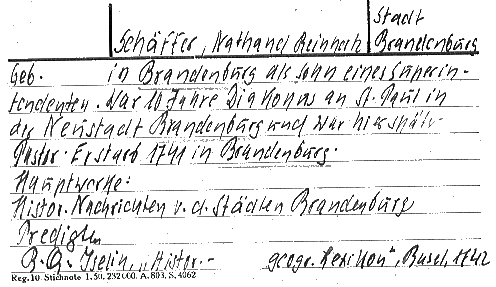 Stadt
Schäffer, Nathanael Reinhold Brandenburg
Geb. in Brandenburg als Sohn eines Superin-
tendenten. War 10 Jahre Diakonus an St. Pauli in
der Neustadt Brandenburg und war hier später
Pastor. Erstarb 1741 in Brandenburg.
Hauptwerke:
Histor. Nachrichten v. d. Städten Brandenburg
Predigten
Iselin, „Histor.- geogr. Lexikon", Basel, 1742
Reg. 10 Stichnote 1. 50. 232000. A. 803, S. 4062